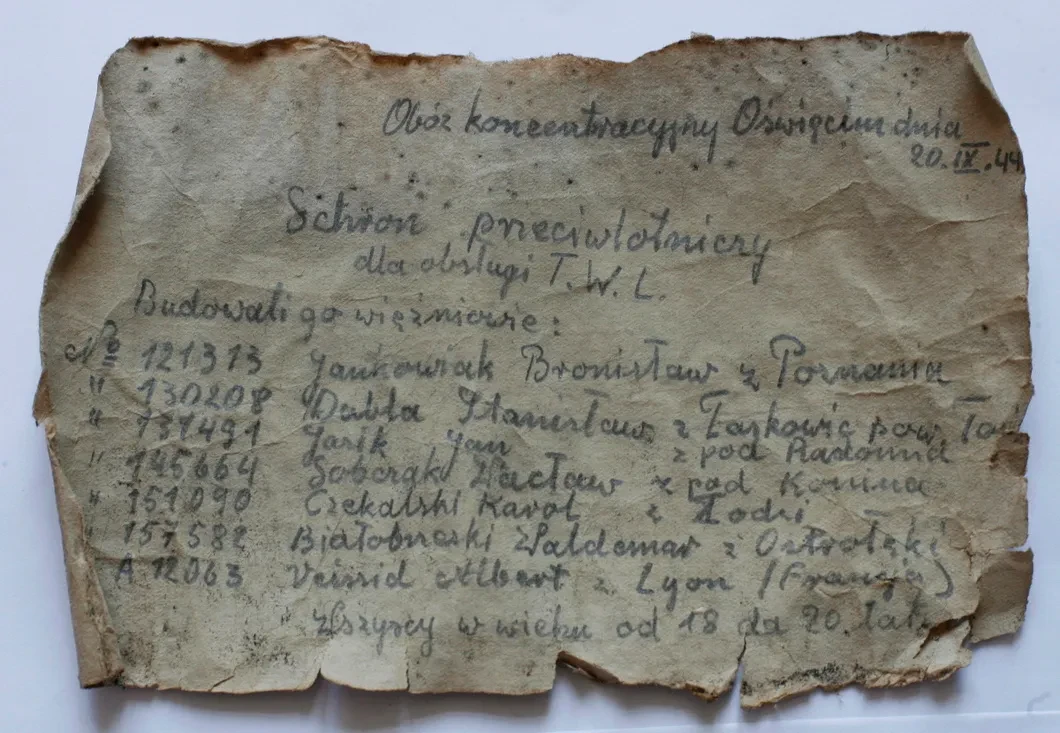 Obóz koncentracyjny Oświęcim dnia
20.IX.44
Schron przeciwlotniczy
dla obsługi T.W.L.
Budowali go więźniowie:
No 121313 Jankowiak Bronisław z Poznania
" 130208 Dubla Stanisław z Łaskowic pow.
" 131491 Jasik Jan z pod Radomia
" 145664 Sobczak Wacław z pod Konina
" 151090 Czekalski Karol z Łodzi
" 157582 Białobrzeski Waldemar z Ostrołęki
A 12063 Veissid Albert z Lyon (Francja)
Wszyscy w wieku od 18 do 20. lat.